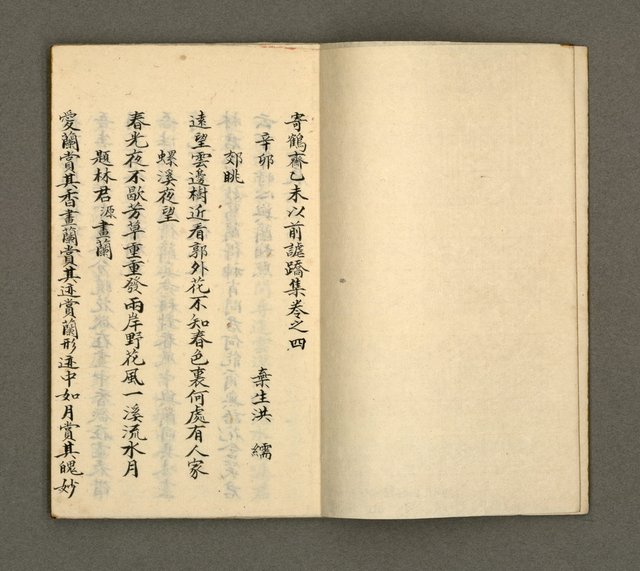 寄鶴齋乙未以前謔蹻集卷之四
辛卯
棄生洪　繻
郊眺
遠望雲邊樹近看郭外花不知春色裏何處有人家
螺溪夜望
春光夜不歇芳草重重發兩岸野花風一溪流水月
題林君源畫蘭
愛蘭賞其香畫蘭賞其迹賞蘭形迹中如月賞其魄妙